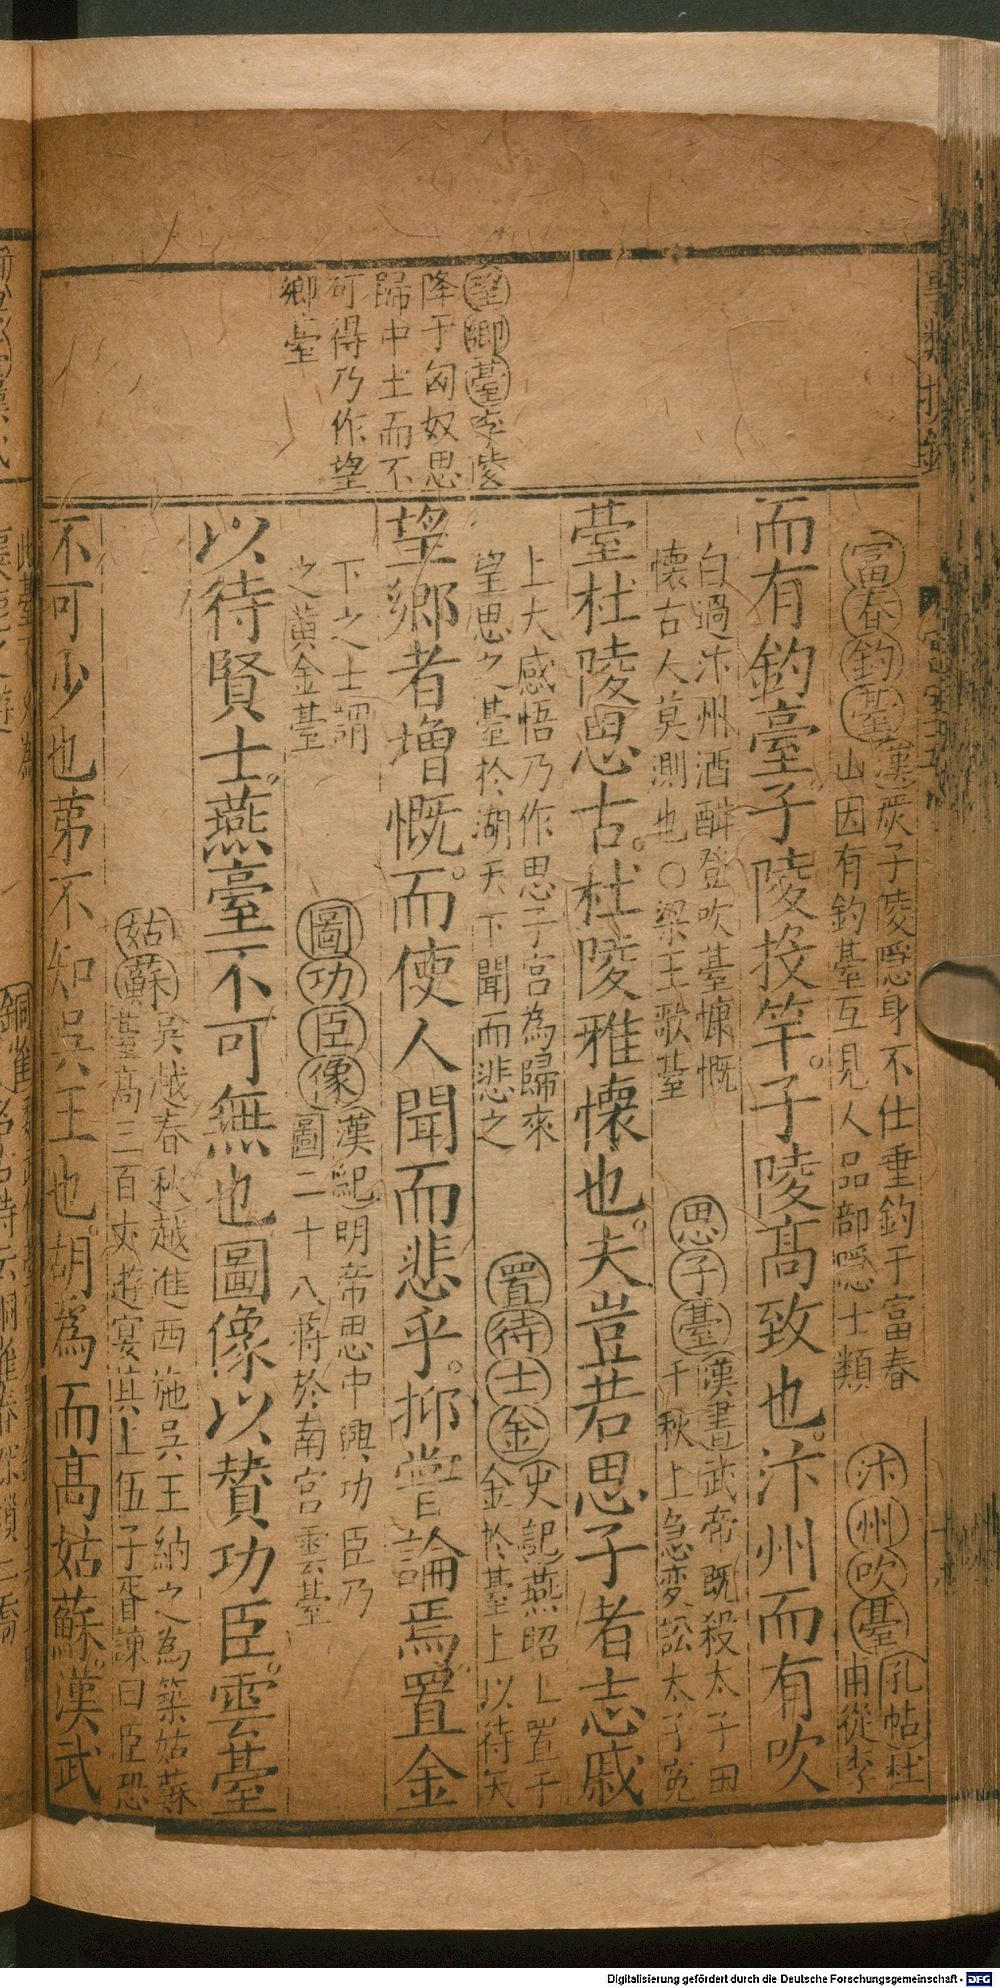 望鄉臺李陵
降于匈奴思
歸中土而不
可得乃作望
鄉臺
富春釣臺漢嚴子陵隱身不仕垂釣于富春
山因有釣臺互見人品部隱士類
汴州吹臺孔帖杜
甫從李
而有釣臺子陵投竿。子陵高致也。汴州而有吹
白過汴州酒酣登吹臺慷慨
懷古人莫測也〇梁王歌臺
思子臺漢書武帝既殺太子田
千秋上急變訟太子冤
臺杜陵思古。杜陵雅懷也。夫豈若思子者志戚
上大感悟乃作思子宮為歸來
望思之臺於湖天下聞而悲之
置待士金史記燕昭上置千
金於臺上以待天
望鄉者增慨。而使人聞而悲乎。抑嘗論焉置金
下之士謂
之黃金臺
圖功臣像漢紀明帝思中興功臣乃
圖二十八蔣於南宮雲臺
以待賢士。燕臺不可無也圖像以贊功臣。雲臺
姑蘇吳越春秋越進西施吳王納之為築姑蘇
臺高三百丈遊宴其上伍子胥諫曰臣恐
不可少也苐不知吳王也。胡為而高姑蘇。漢武
Digitalisierung gefördert durch die Deutsche Forschungsgemeinschaft - DFG